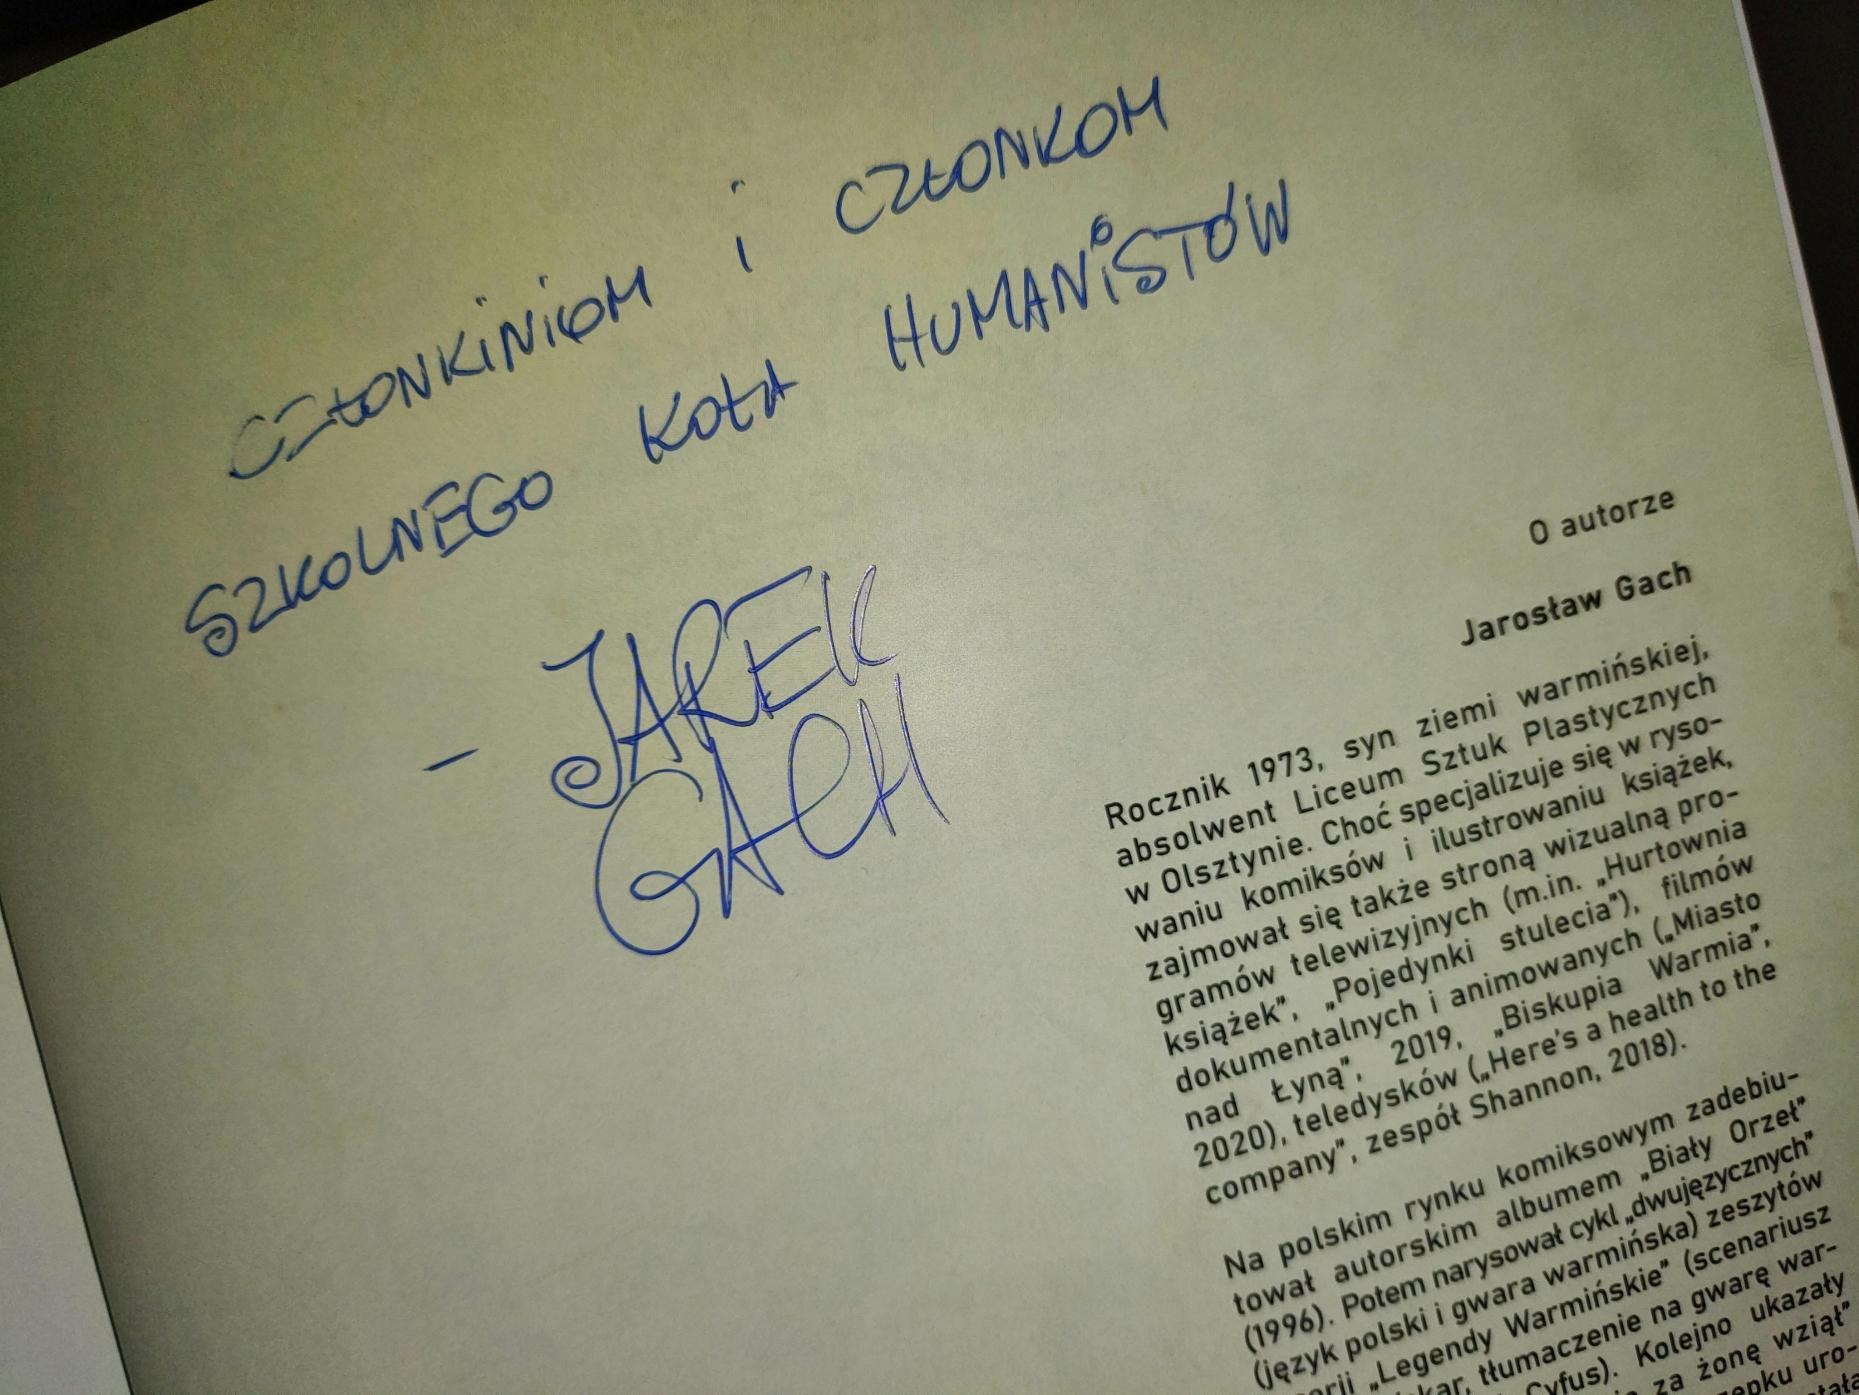 CZŁONKINIOM i CZŁONKOM
SZKOLNEGO KOŁA HUMANISTÓW
– JAREK
GACH
O autorze
Jarosław Gach
Rocznik 1973, syn ziemi warmińskiej,
absolwent Liceum Sztuk Plastycznych
w Olsztynie. Choć specjalizuje się w ryso-
waniu komiksów i ilustrowaniu książek,
zajmował się także stroną wizualną pro-
gramów telewizyjnych (m.in. „Hurtownia
książek”, „Pojedynki stulecia”), filmów
dokumentalnych i animowanych („Miasto
nad Łyną”, 2019, „Biskupia Warmia”,
2020), teledysków („Here's a health to the
company”, zespół Shannon, 2018).
Na polskim rynku komiksowym zadebiu-
tował autorskim albumem „Biały Orzeł”
(1996). Potem narysował cykl „dwujęzycznych”
(język polski i gwara warmińska) zeszytów
„Legendy Warmińskie” (scenariusz
tłumaczenie na gwarę war-
Cyfus). Kolejno ukazały
za żonę wziął”